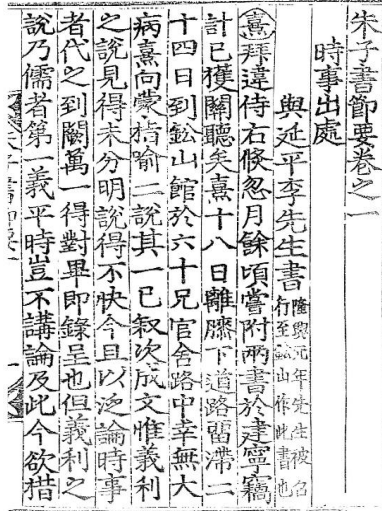 朱子書節要卷之一
時事出處
與延平李先生書
隆興元年先生被召
行至鈆山作此書也
熹拜違侍右倐忽月餘頃嘗附兩書於建寧竊
計已獲關聽矣熹十八日離膝下道路留滯二
十四日到鈆山館於六十兄官舍路中幸無大
病熹向蒙指喻二說其一已叙次成文惟義利
之說見得未分明說得不快今且以泛論時事
者代之到闕萬一得對畢即錄呈也但義利之
說乃儒者第一義平時豈不講論及此今欲措